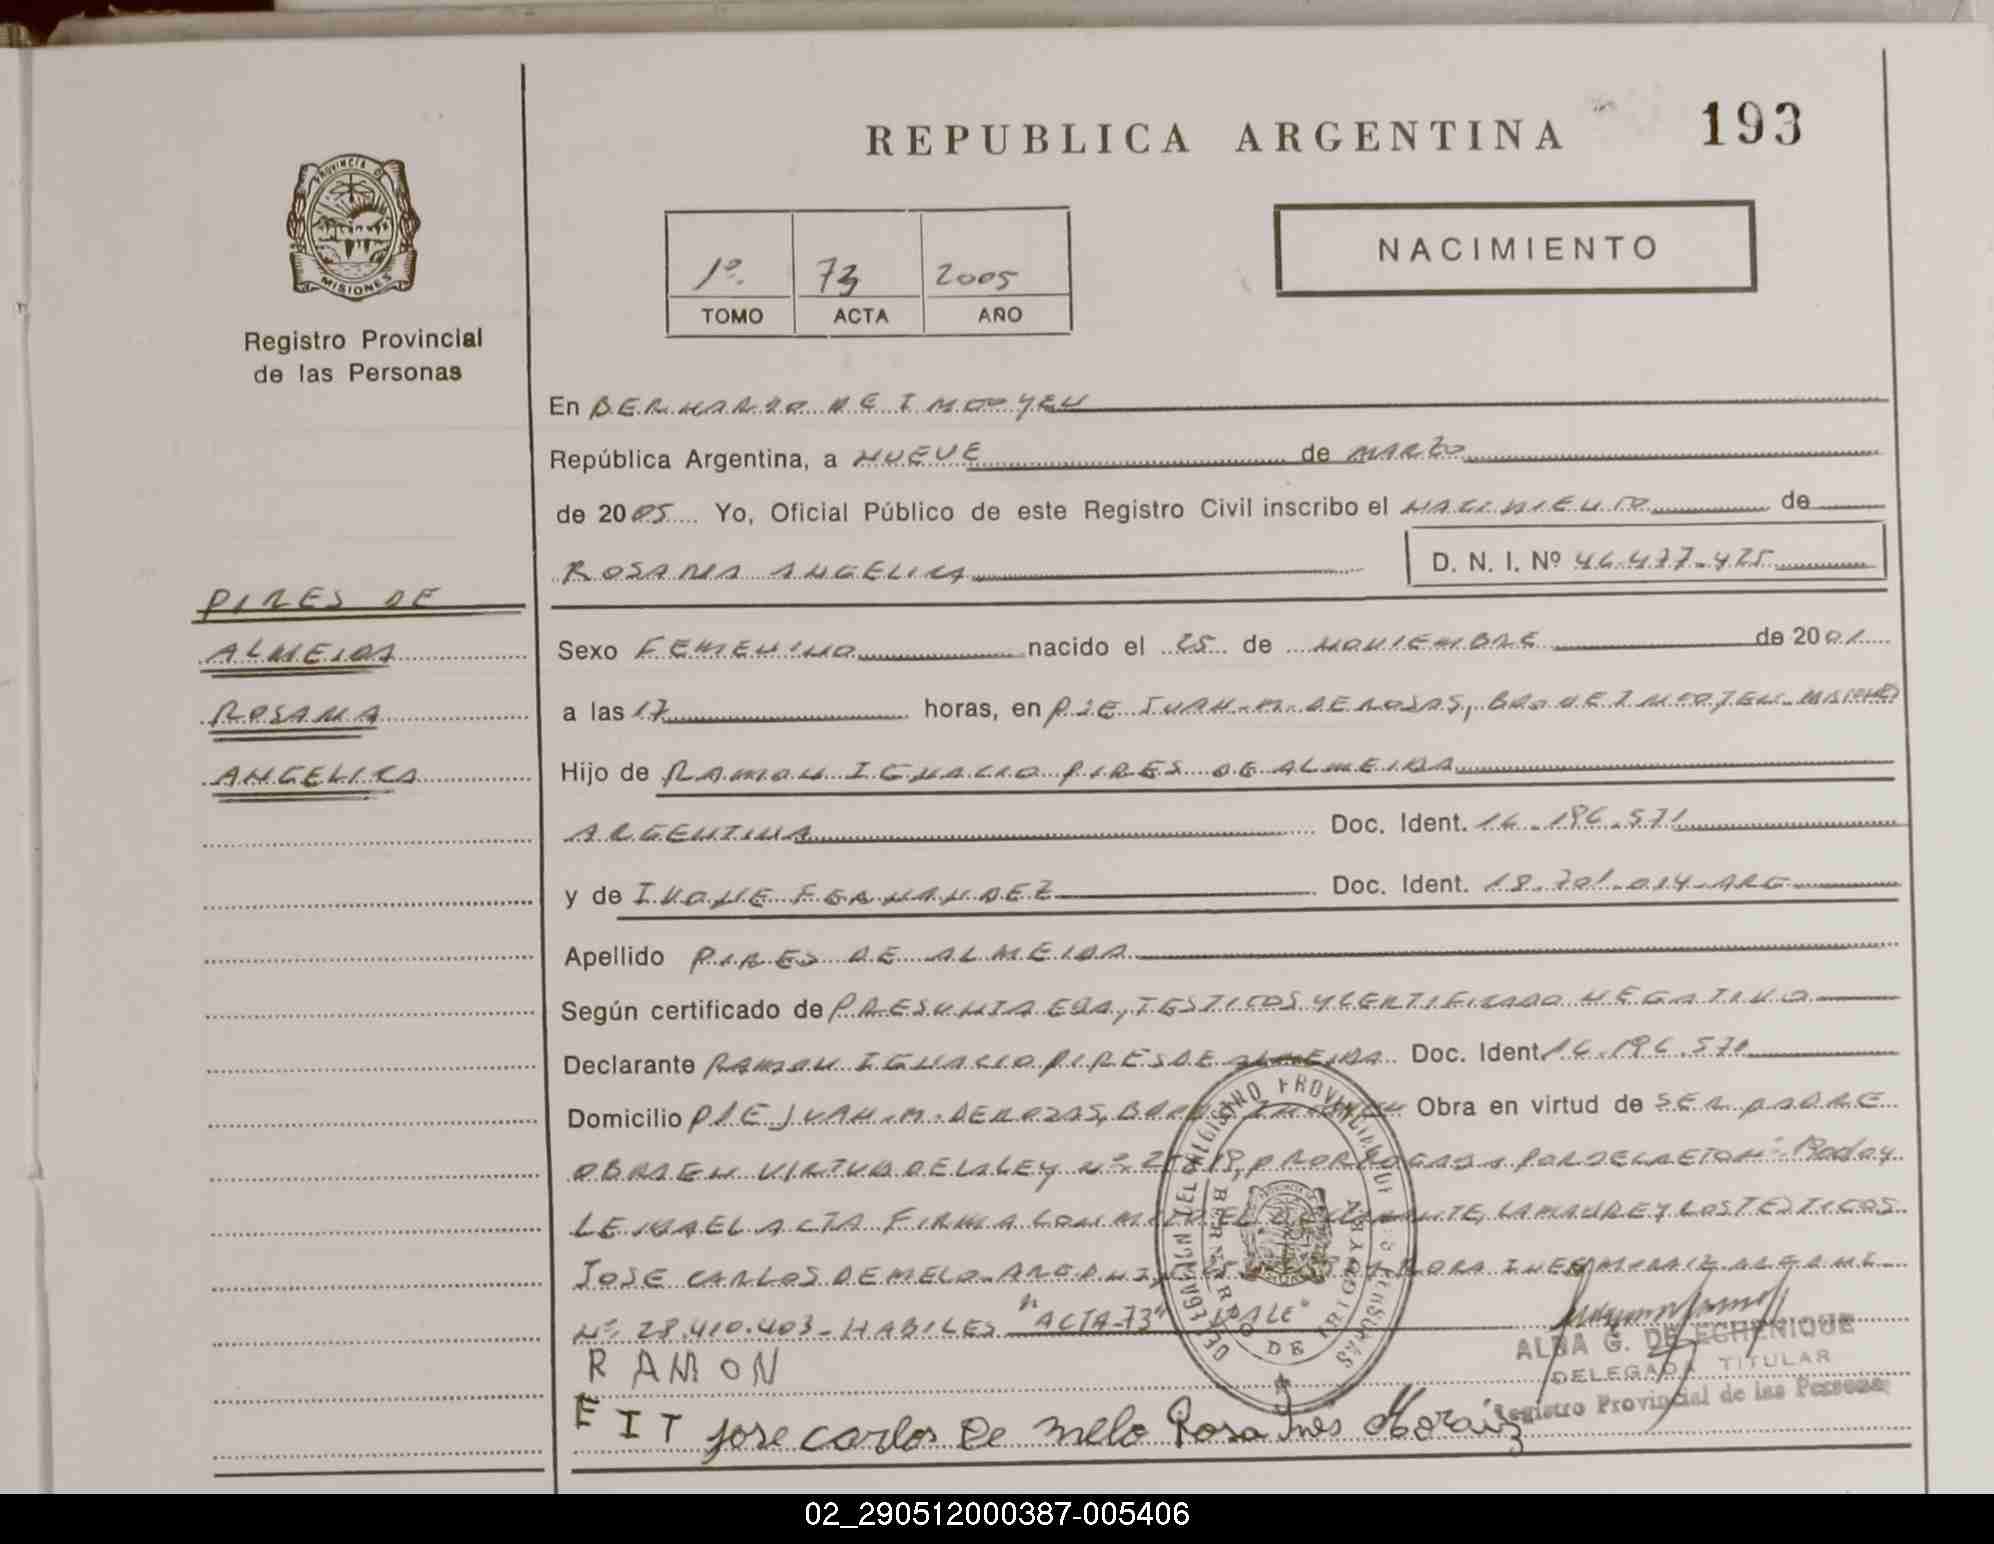 REPUBLICA ARGENTINA
193
PROVINCIA DE
MISIONES
Registro Provincial
de las Personas
1º. 73 2005
TOMO ACTA AÑO
NACIMIENTO
En BERNARDO DE IRIGOYEN
República Argentina, a NUEVE de MARZO
de 2005 Yo, Oficial Público de este Registro Civil inscribo el NACIMIENTO de
ROSANA ANGELICA D. N. I. Nº
PIRES DE
ALMEIDA
ROSANA
ANGELICA
Sexo FEMENINO nacido el 25 de NOVIEMBRE de 2001
a las 17 horas, en PJE JUAN M. DE ROSAS, BDO DE IRIGOYEN MISIONES
Hijo de RAMON IGNACIO PIRES DE ALMEIDA
ARGENTINA Doc. Ident. 16.196.571
y de IVONE FERNANDEZ Doc. Ident. 18.701.014 ARG
Apellido PIRES DE ALMEIDA
Según certificado de PRESUNTA EDA, TESTIGOS Y CERTIFICADO NEGATIVO
Declarante RAMON IGNACIO PIRES DE ALMEIDA Doc. Ident. 16.196.571
Domicilio PJE JUAN M. DE ROSAS, BDO DE IRIGOYEN Obra en virtud de SER PADRE
OBRA EN VIRTUD DE LA LEY Nº PRORROGADA POR DECRETO Nº
LEIDA EL ACTA FIRMA CONMIGO EL DECLARANTE, LA MADRE Y LOS TESTIGOS
JOSE CARLOS DE MELO ARG DNI ROSA INES MORAIZ ARG DNI
Nº 28.410.403 - HABILES "ACTA 73" VALE"
RAMON
FIT Jose carlos De mello Rosa Inés Moraiz
DELEGACION DEL REGISTRO PROVINCIAL DE LAS PERSONAS
BERNARDO DE IRIGOYEN
ALBA G. DE ECHENIQUE
DELEGADA TITULAR
Registro Provincial de las Personas
02_290512000387-005406